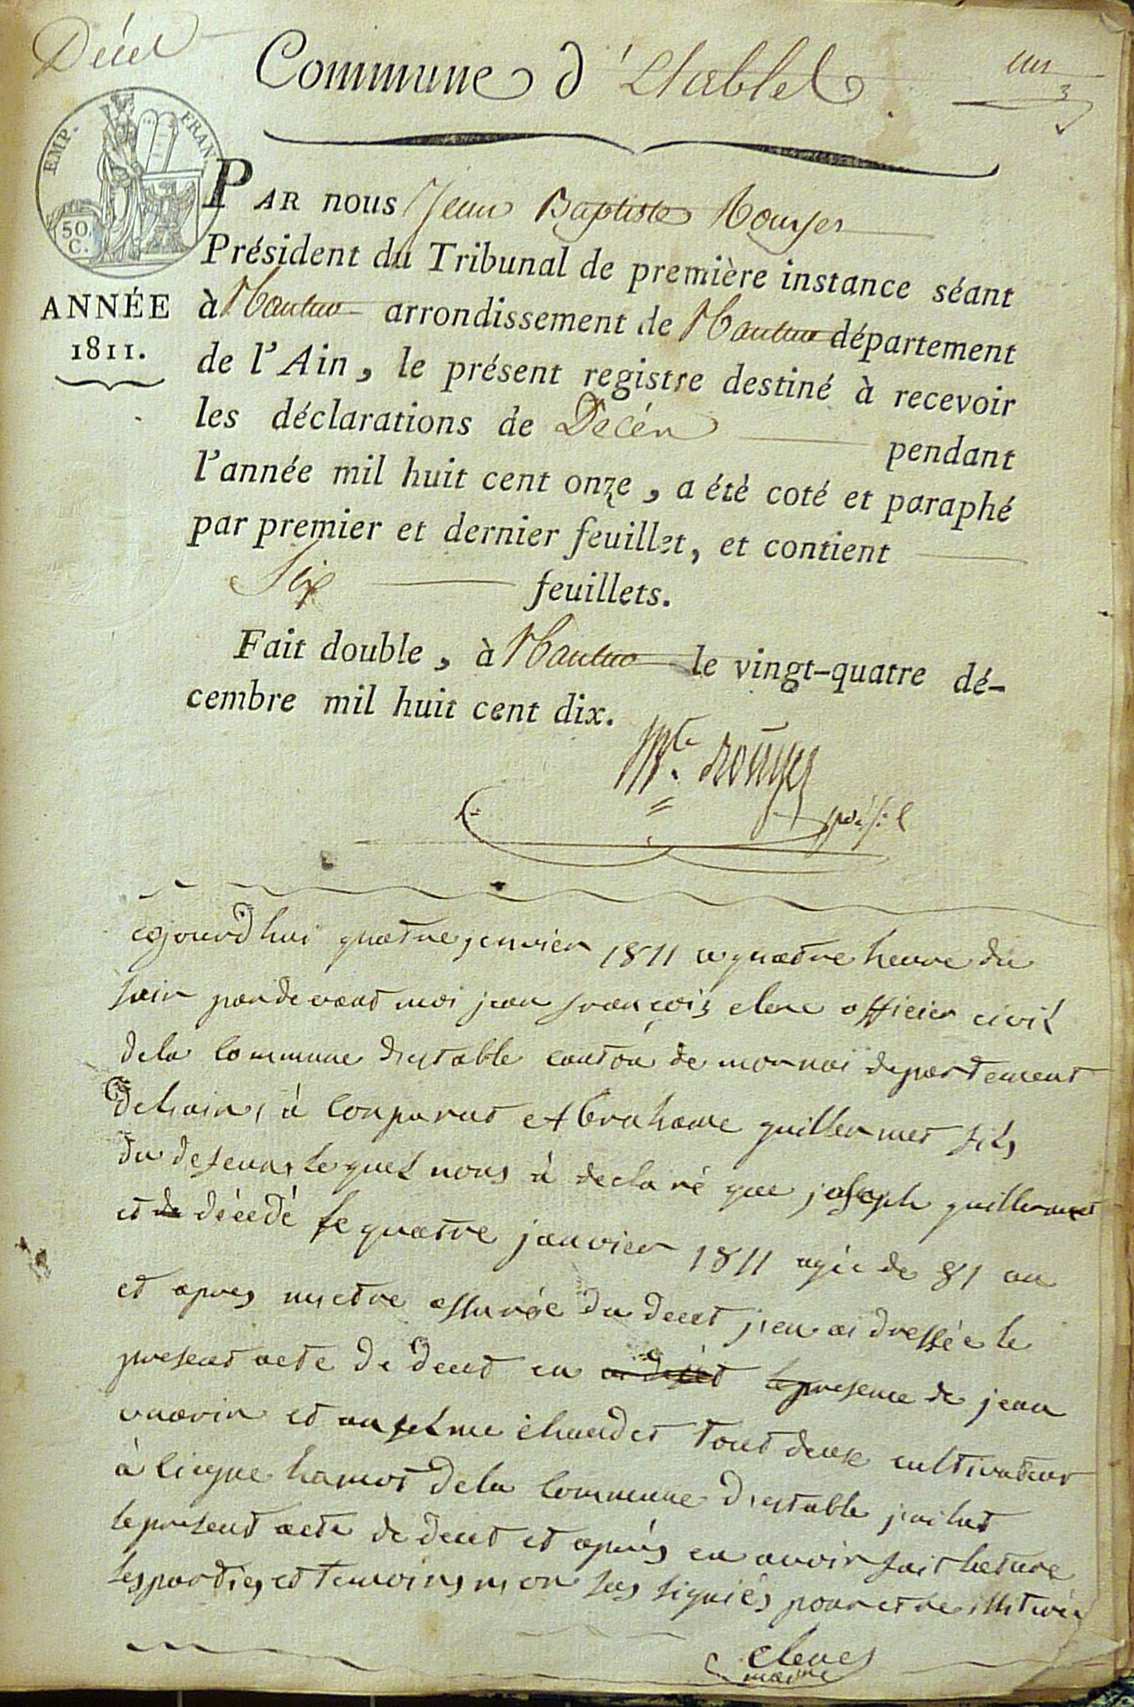 Décès
Commune d'Etables
un
EMP. FRAN.
50. C.
PAR nous Jean Baptiste Rouyer
Président du Tribunal de première instance séant
ANNÉE
1811.
à Nantua arrondissement de Nantua département
de l'Ain, le présent registre destiné à recevoir
les déclarations de Décés pendant
l'année mil huit cent onze, a été coté et paraphé
par premier et dernier feuillet, et contient
Six feuillets.
Fait double, à Nantua le vingt-quatre dé-
cembre mil huit cent dix.
Bte. Rouyer
présid.
ojourd'hui quatre jenvier 1811 a quatre heure du
soir pardevant moi jean françois clerc officier civil
dela Commune d'estable canton de mornai departement
de lain, à Conparut Abrahame guillermet fils
du defeunt lequel nous à declaré que joseph guillermet
et de décédé le quatre janvier 1811 agée de 81 an
et apres metre assurée du decet j'en ai dressée le
present acte de decet en presence de jean
vuarin et anselme chaudet tout deux cultivateur
à Ciegne hamot dela Commune d'estable j'ai lut
le present acte de decet et après en avoir fait lecture
les parties et temoins n'on sus signiés pour etre illitirée
clerc
maire